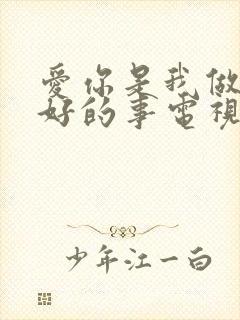 愛你是我做
好的事電視
少年江一白